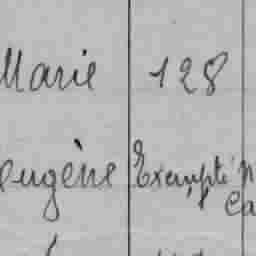 Marie 128
Eugène Exempté
Ca